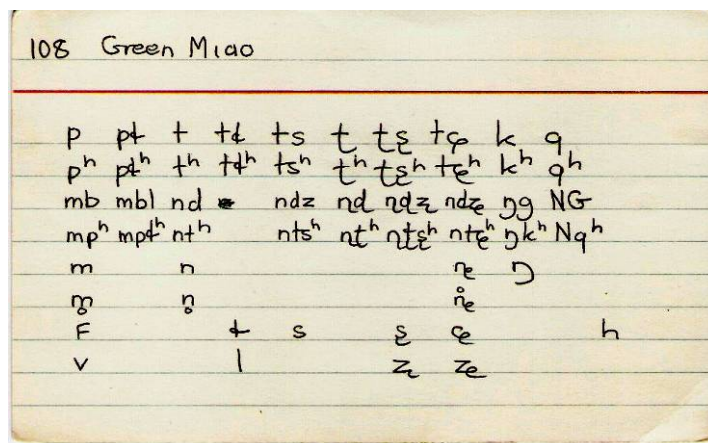 108 Green Miao
p pɬ t tɬ ts ʈ ʈʂ tɕ k q
pʰ pɬʰ tʰ tɬʰ tsʰ ʈʰ ʈʂʰ tɕʰ kʰ qʰ
mb mbl nd ndz ɳɖ ɳɖʐ ndʑ ŋg NG
mpʰ mpɬʰ ntʰ ntsʰ ɳʈʰ ɳʈʂʰ ntɕʰ ŋkʰ Nqʰ
m n ȵ ŋ
m̥ n̥ ȵ̊
F ɬ s ʂ ɕ h
v l ʐ ʑ